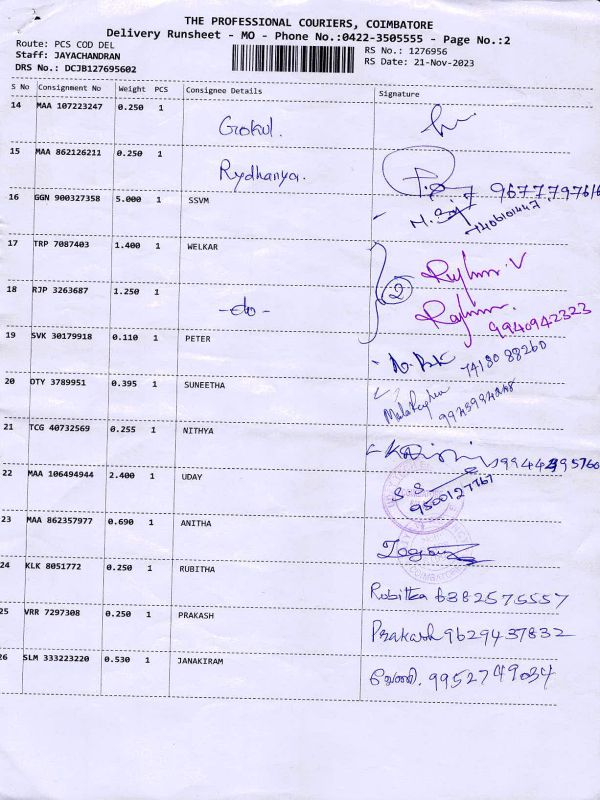 THE PROFESSIONAL COURIERS, COIMBATORE
Delivery Runsheet - MO - Phone No.:0422-3505555 - Page No.:2
Route: PCS COD DEL
RS No.: 1276956
Staff: JAYACHANDRAN
RS Date: 21-Nov-2023
DRS No.: DCJB127695602
S No Consignment No Weight PCS Consignee Details Signature
14 MAA 107223247 0.250 1 Gokul.
15 MAA 862126211 0.250 1 Rydhanya.
16 GGN 900327358 5.000 1 SSVM
17 TRP 7087403 1.400 1 WELKAR
18 RJP 3263687 1.250 1 -do- 2 9940942323
19 SVK 30179918 0.110 1 PETER 74180 88260
20 OTY 3789951 0.395 1 SUNEETHA
21 TCG 40732569 0.255 1 NITHYA
22 MAA 106494944 2.400 1 UDAY S.S 9500127761
23 MAA 862357977 0.690 1 ANITHA
24 KLK 8051772 0.250 1 RUBITHA Rubitha 6382575557
25 VRR 7297308 0.250 1 PRAKASH Prakash 9629437832
26 SLM 333223220 0.530 1 JANAKIRAM 9952749034